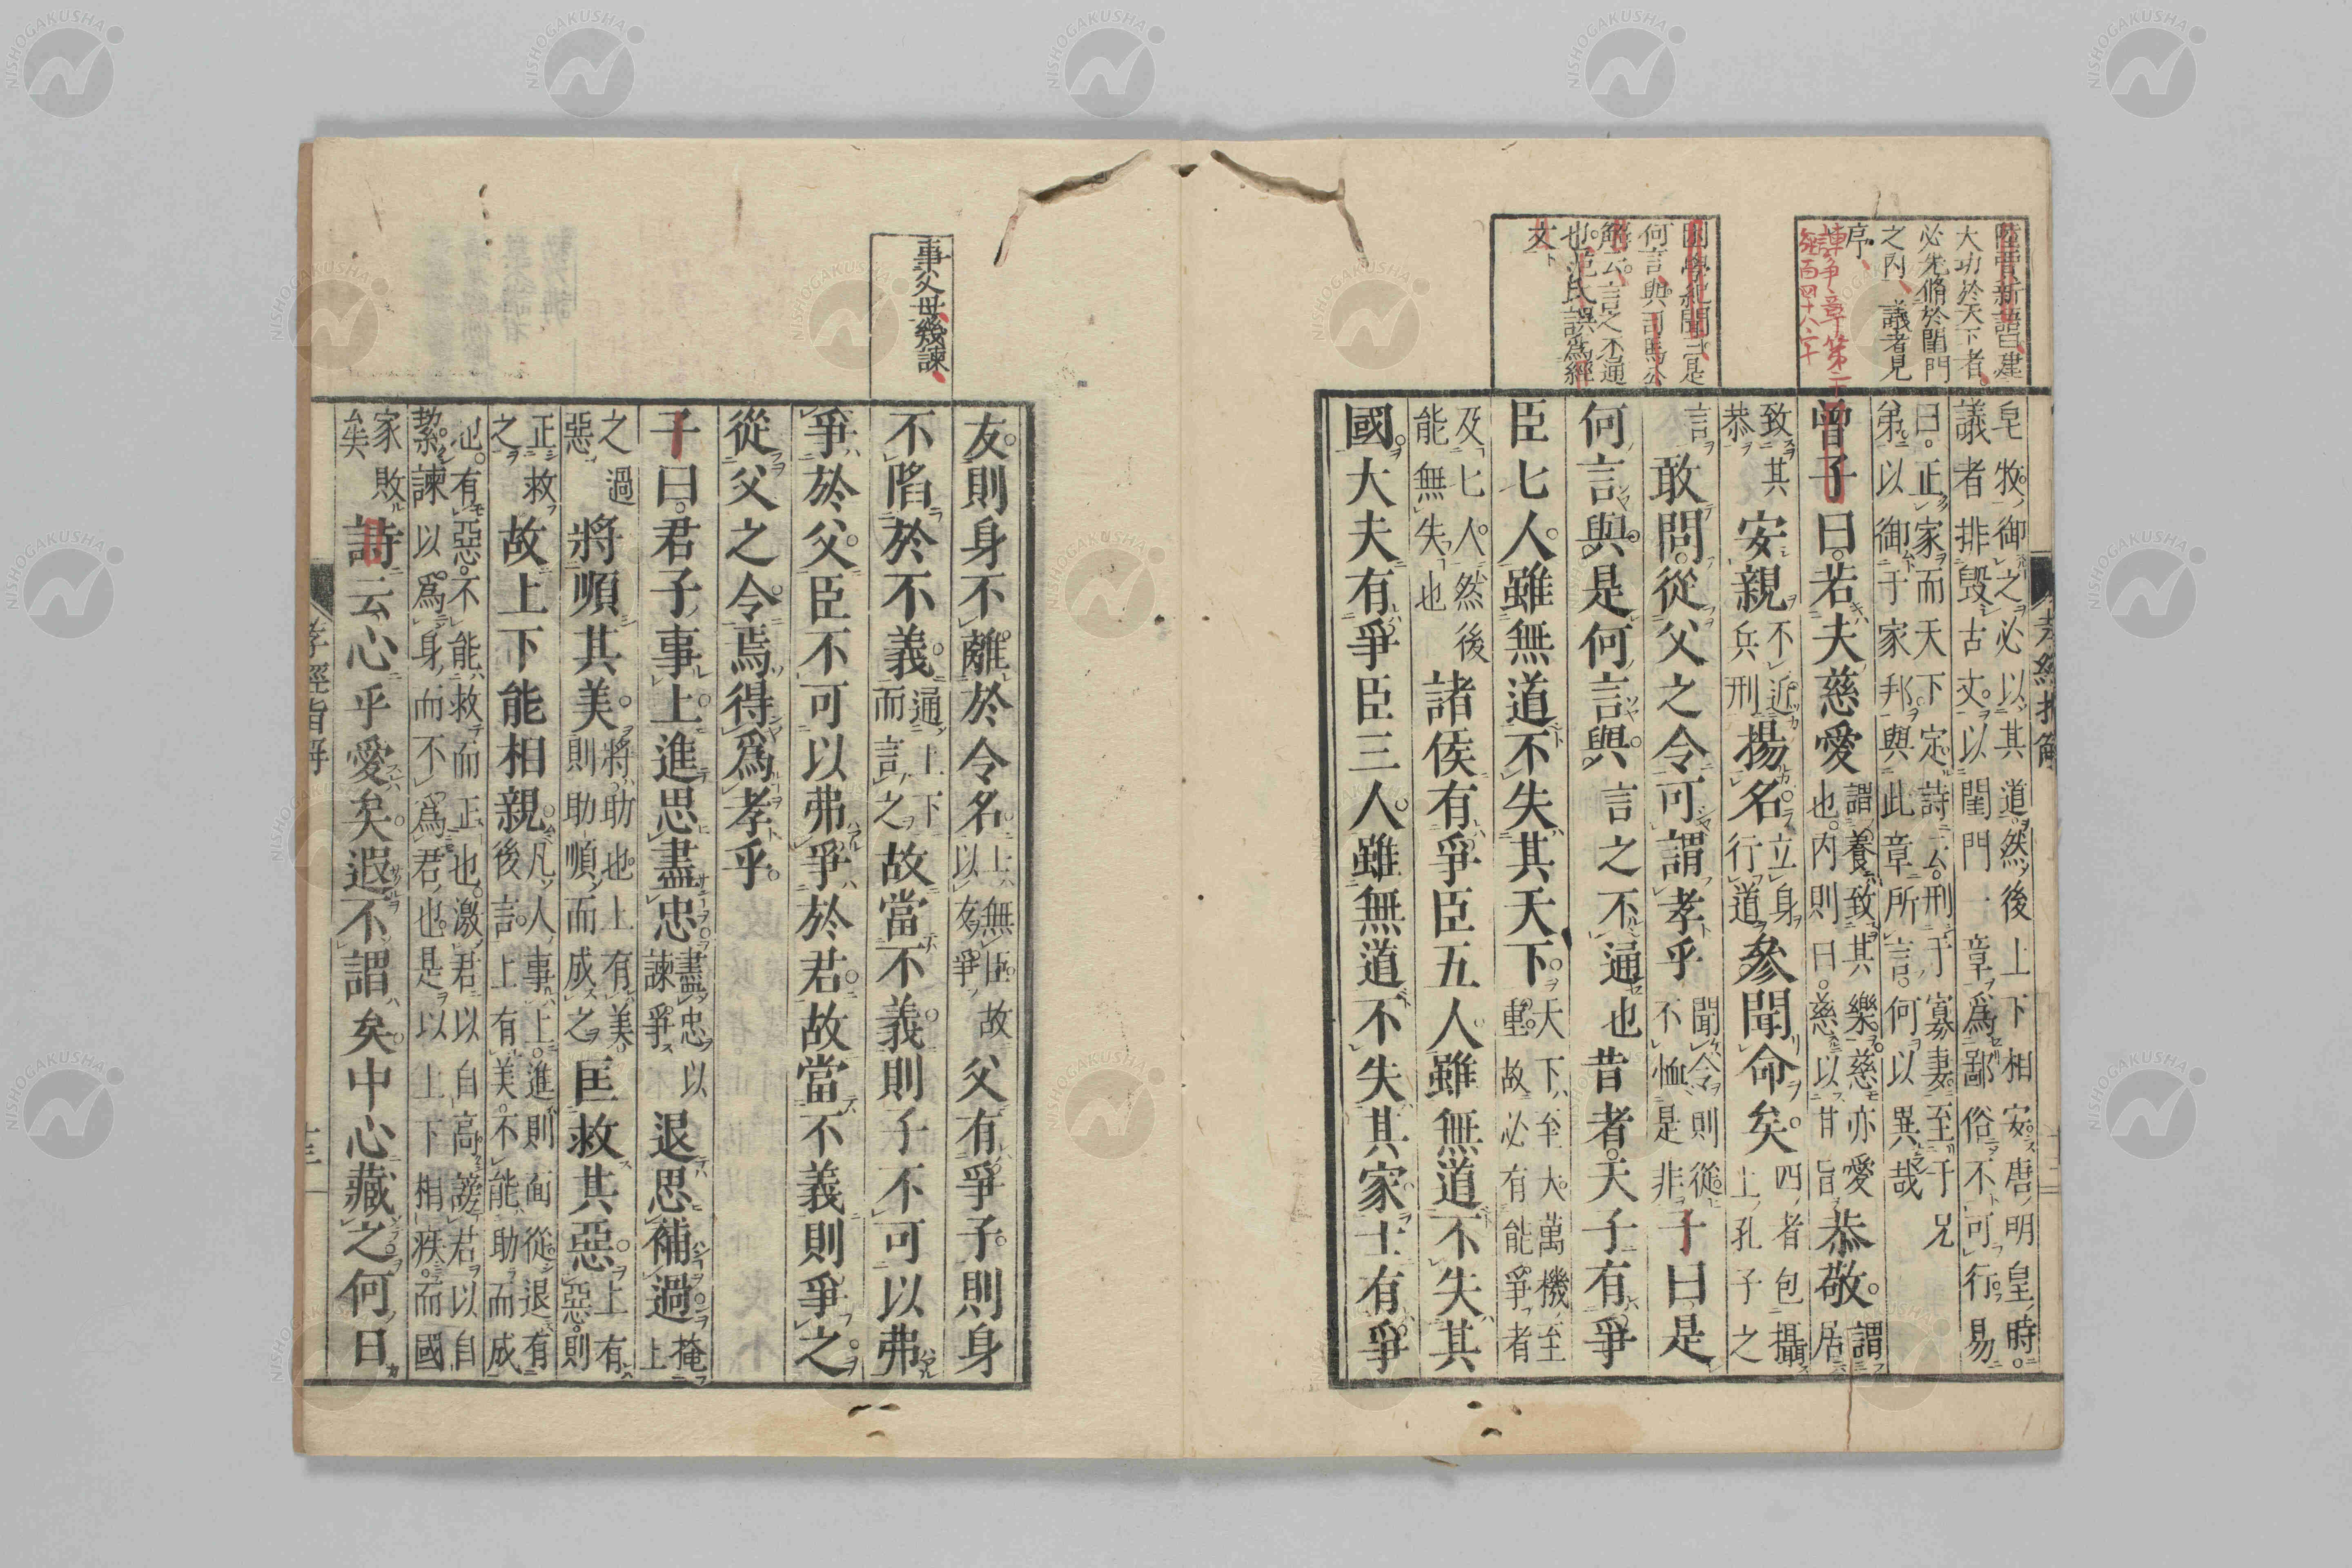 陸賈新語曰建
大功於天下者
必先脩於閨門
之內 議者見
序
諫爭章第二十
經百四十八字
困學紀聞云是
何言與司馬公
解云言之不通
也范氏誤爲經
文
皂牧御之必以其道然後上下相安唐明皇時
議者排毀古文以閨門一章爲鄙俗不可行易
曰正家而天下定詩云刑于寡妻至于兄
弟以御于家邦與此章所言何以異哉
曾子曰若夫慈愛謂養致其樂慈亦愛
也內則曰慈以甘旨恭敬謂
居
致其
恭安親不近
兵刑揚名立身
行道參聞命矣四者包攝
上孔子之
言敢問從父之令可謂孝乎聞令則從
不恤是非子曰是
何言與是何言與言之不通也昔者天子有爭
臣七人雖無道不失其天下天下至大萬機至
重故必有能爭者
及七人然後
能無失也諸侯有爭臣五人雖無道不失其
國大夫有爭臣三人雖無道不失其家士有爭
孝經指解
十二
事父母幾諫
友則身不離於令名上無臣故
以友爭父有爭子則身
不陷於不義通上下
而言之故當不義則子不可以弗
爭於父臣不可以弗爭於君故當不義則爭之
從父之令焉得爲孝乎
子曰君子事上進思盡忠盡忠以
諫爭退思補過掩
上
之過
惡將順其美將助也上有美
則助順而成之匡救其惡上有
惡則
正救
之故上下能相親凡人事上進則面從退有
後言上有美不能助而成
也有惡不能救而正也激君以自高謗君以自
絜諫以爲身而不爲君也是以上下相疾而國
家敗
矣詩云心乎愛矣遐不謂矣中心藏之何日
孝經指解
十三